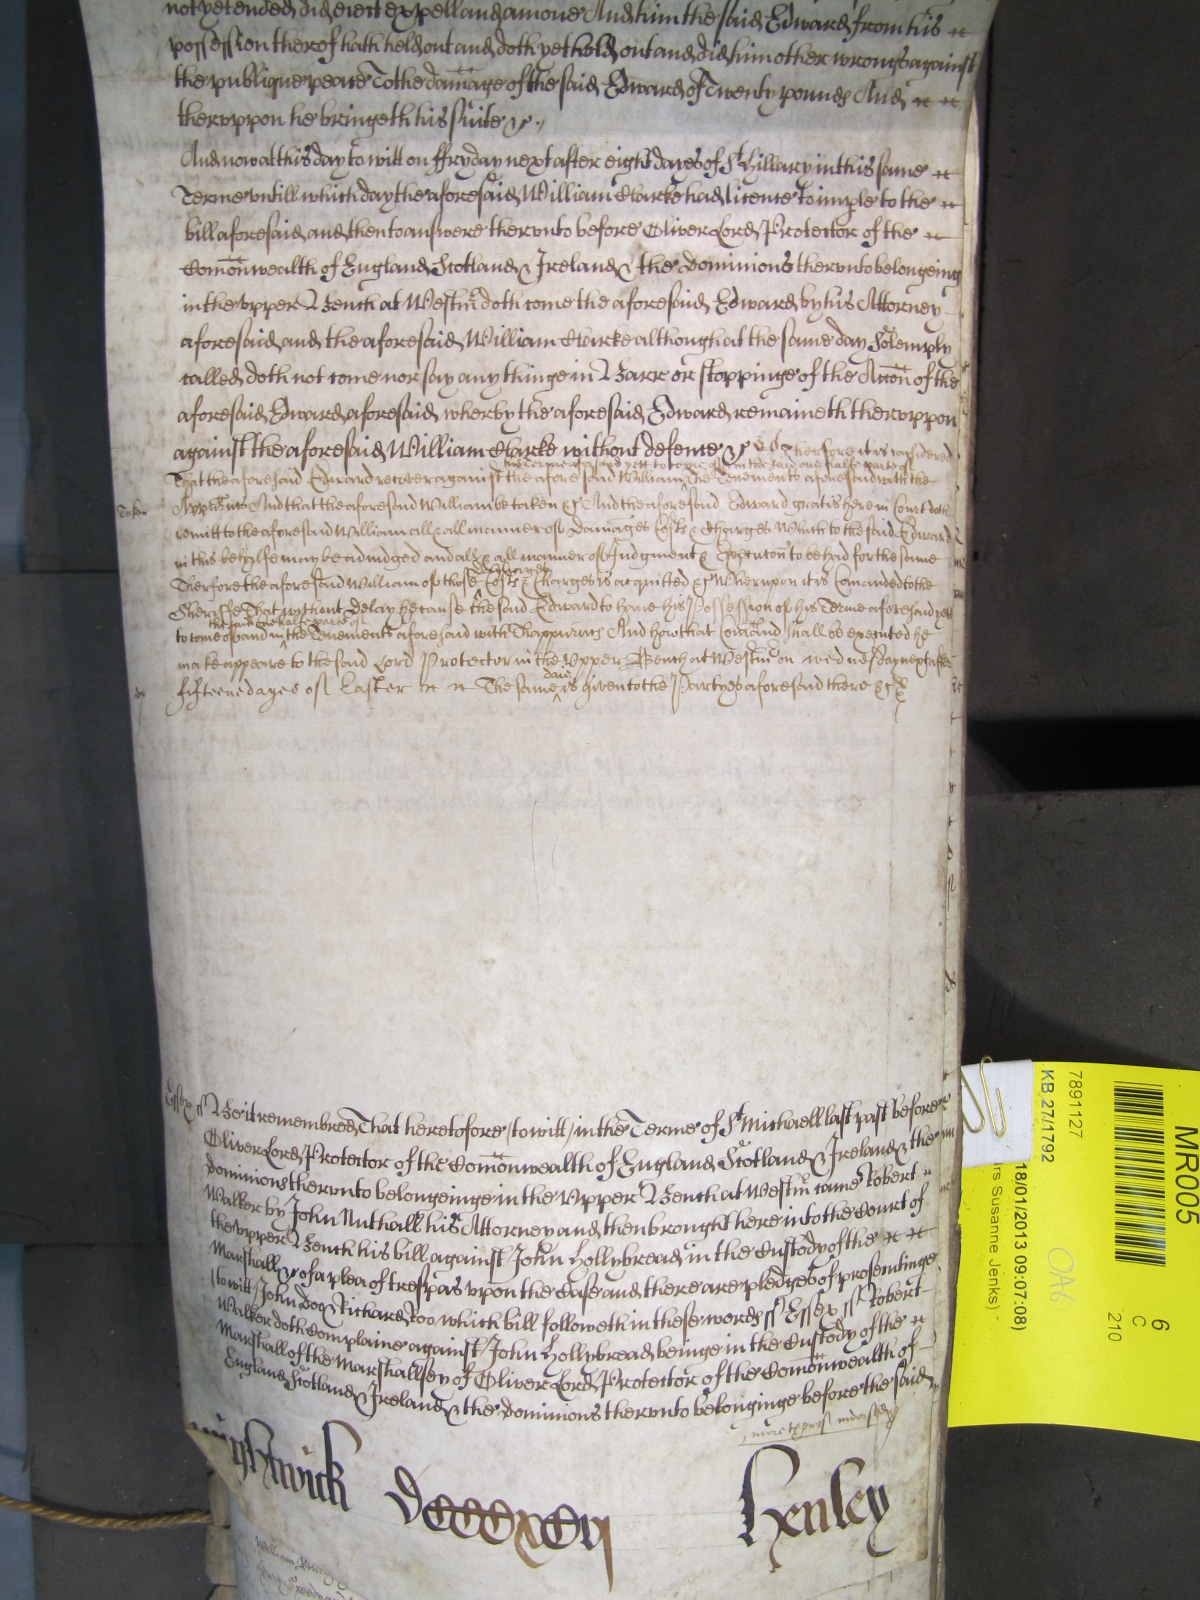 not yet ended did eiect expell and amove And him the said Edward from his
possession therof hath held out and doth yet hold out and did him other wrongs against
the publique peace To the damage of the said Edward of Twenty pounds And
thervppon he bringeth his suite &c
And now at this day to witt on ffryday next after eight dayes of St Hillary in this same
Terme vntill which day the aforesaid William Clarke had licence to imple to the
bill aforesaid and then to answere thervnto before Oliver Lord Protector of the
Comonwealth of England Scotland & Ireland & the Dominions thervnto belongeing
in the vpper Bench at Westm doth come the aforesaid Edward by his Attorney
aforesaid and the aforesaid William Clarke although at the same day Solemply
called doth not come nor say any thinge in Barr or stoppinge of the Accon of the
aforesaid Edward aforesaid wherby the aforesaid Edward remaineth thervppon
against the aforesaid William Clarke without defence &c Therfore it is considered
the terme aforesaid yett to come of & in the said one halfe parte of
That the aforesaid Edward recover against the aforesaid William the Tenements aforesaid with the
Appurtents And that the aforesaid William be taken &c And the aforesaid Edward gratis here in Court doth
remitt to the aforesaid William all & all manner of Damages Costs & Charges Which to the said Edward
in this behalfe may be adiudged and all & all manner of Judgment & Execucon to be had for the same
Damages
Therfore the aforesaid William of those Costs & Charges is acquitted &c Wherupon it is Comanded to the
Sheriffe That without Delay he cause the said Edward to have his Possession of his Terme aforesaid yett
the said one halfe parte of
to come of and in the Tenements aforesaid with Thappurtts And how that Comand shall be executed he
make appeare to the said Lord Protector in the Vpper Bench at Westm on wednesday next after
daie
fifteene dayes of Easter The same is given to the Partyes aforesaid there &c
Essex ss Be it remembred That heretofore to witt in the Terme of St Michaell last past before
Oliver Lord Protector of the Comonwealth of England Scotland & Ireland & the
Dominions thervnto belongeinge in the Vpper Bench at Westm came Robert
Walker by John Nuthall his Attorney and then brought here into the Court of
the vpper Bench his bill against John Hollybread in the Custody of the
Marshall &c of a plea of trespas vpon the Case and there are pledges of prosecutinge
to witt John Doo & Richard Roo which bill followeth in these words ss Essex ss Robert
Walker doth Complaine against John Hollybread beinge in the Custody of the
Marshall of the Marshallsey of Oliver Lord Protector of the Comonwealth of
England Scotland & Ireland & the Dominions thervnto belonginge before the said
Henley
MR005
7891127
KB 27/1792
18/01/2013 09:07:08)
rs Susanne Jenks) -
OA6
6
C
210